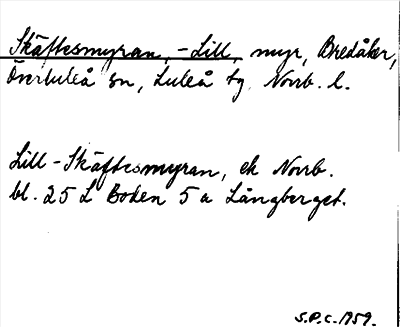 Skäftesmyran, -Lill, myr, Bredåker,
Överluleå sn, Luleå tg. Norrb. l.
Lill-Skäftesmyran, ek Norrb.
bl. 25 L Boden 5 a Långberget.
S.P.C. 1959.